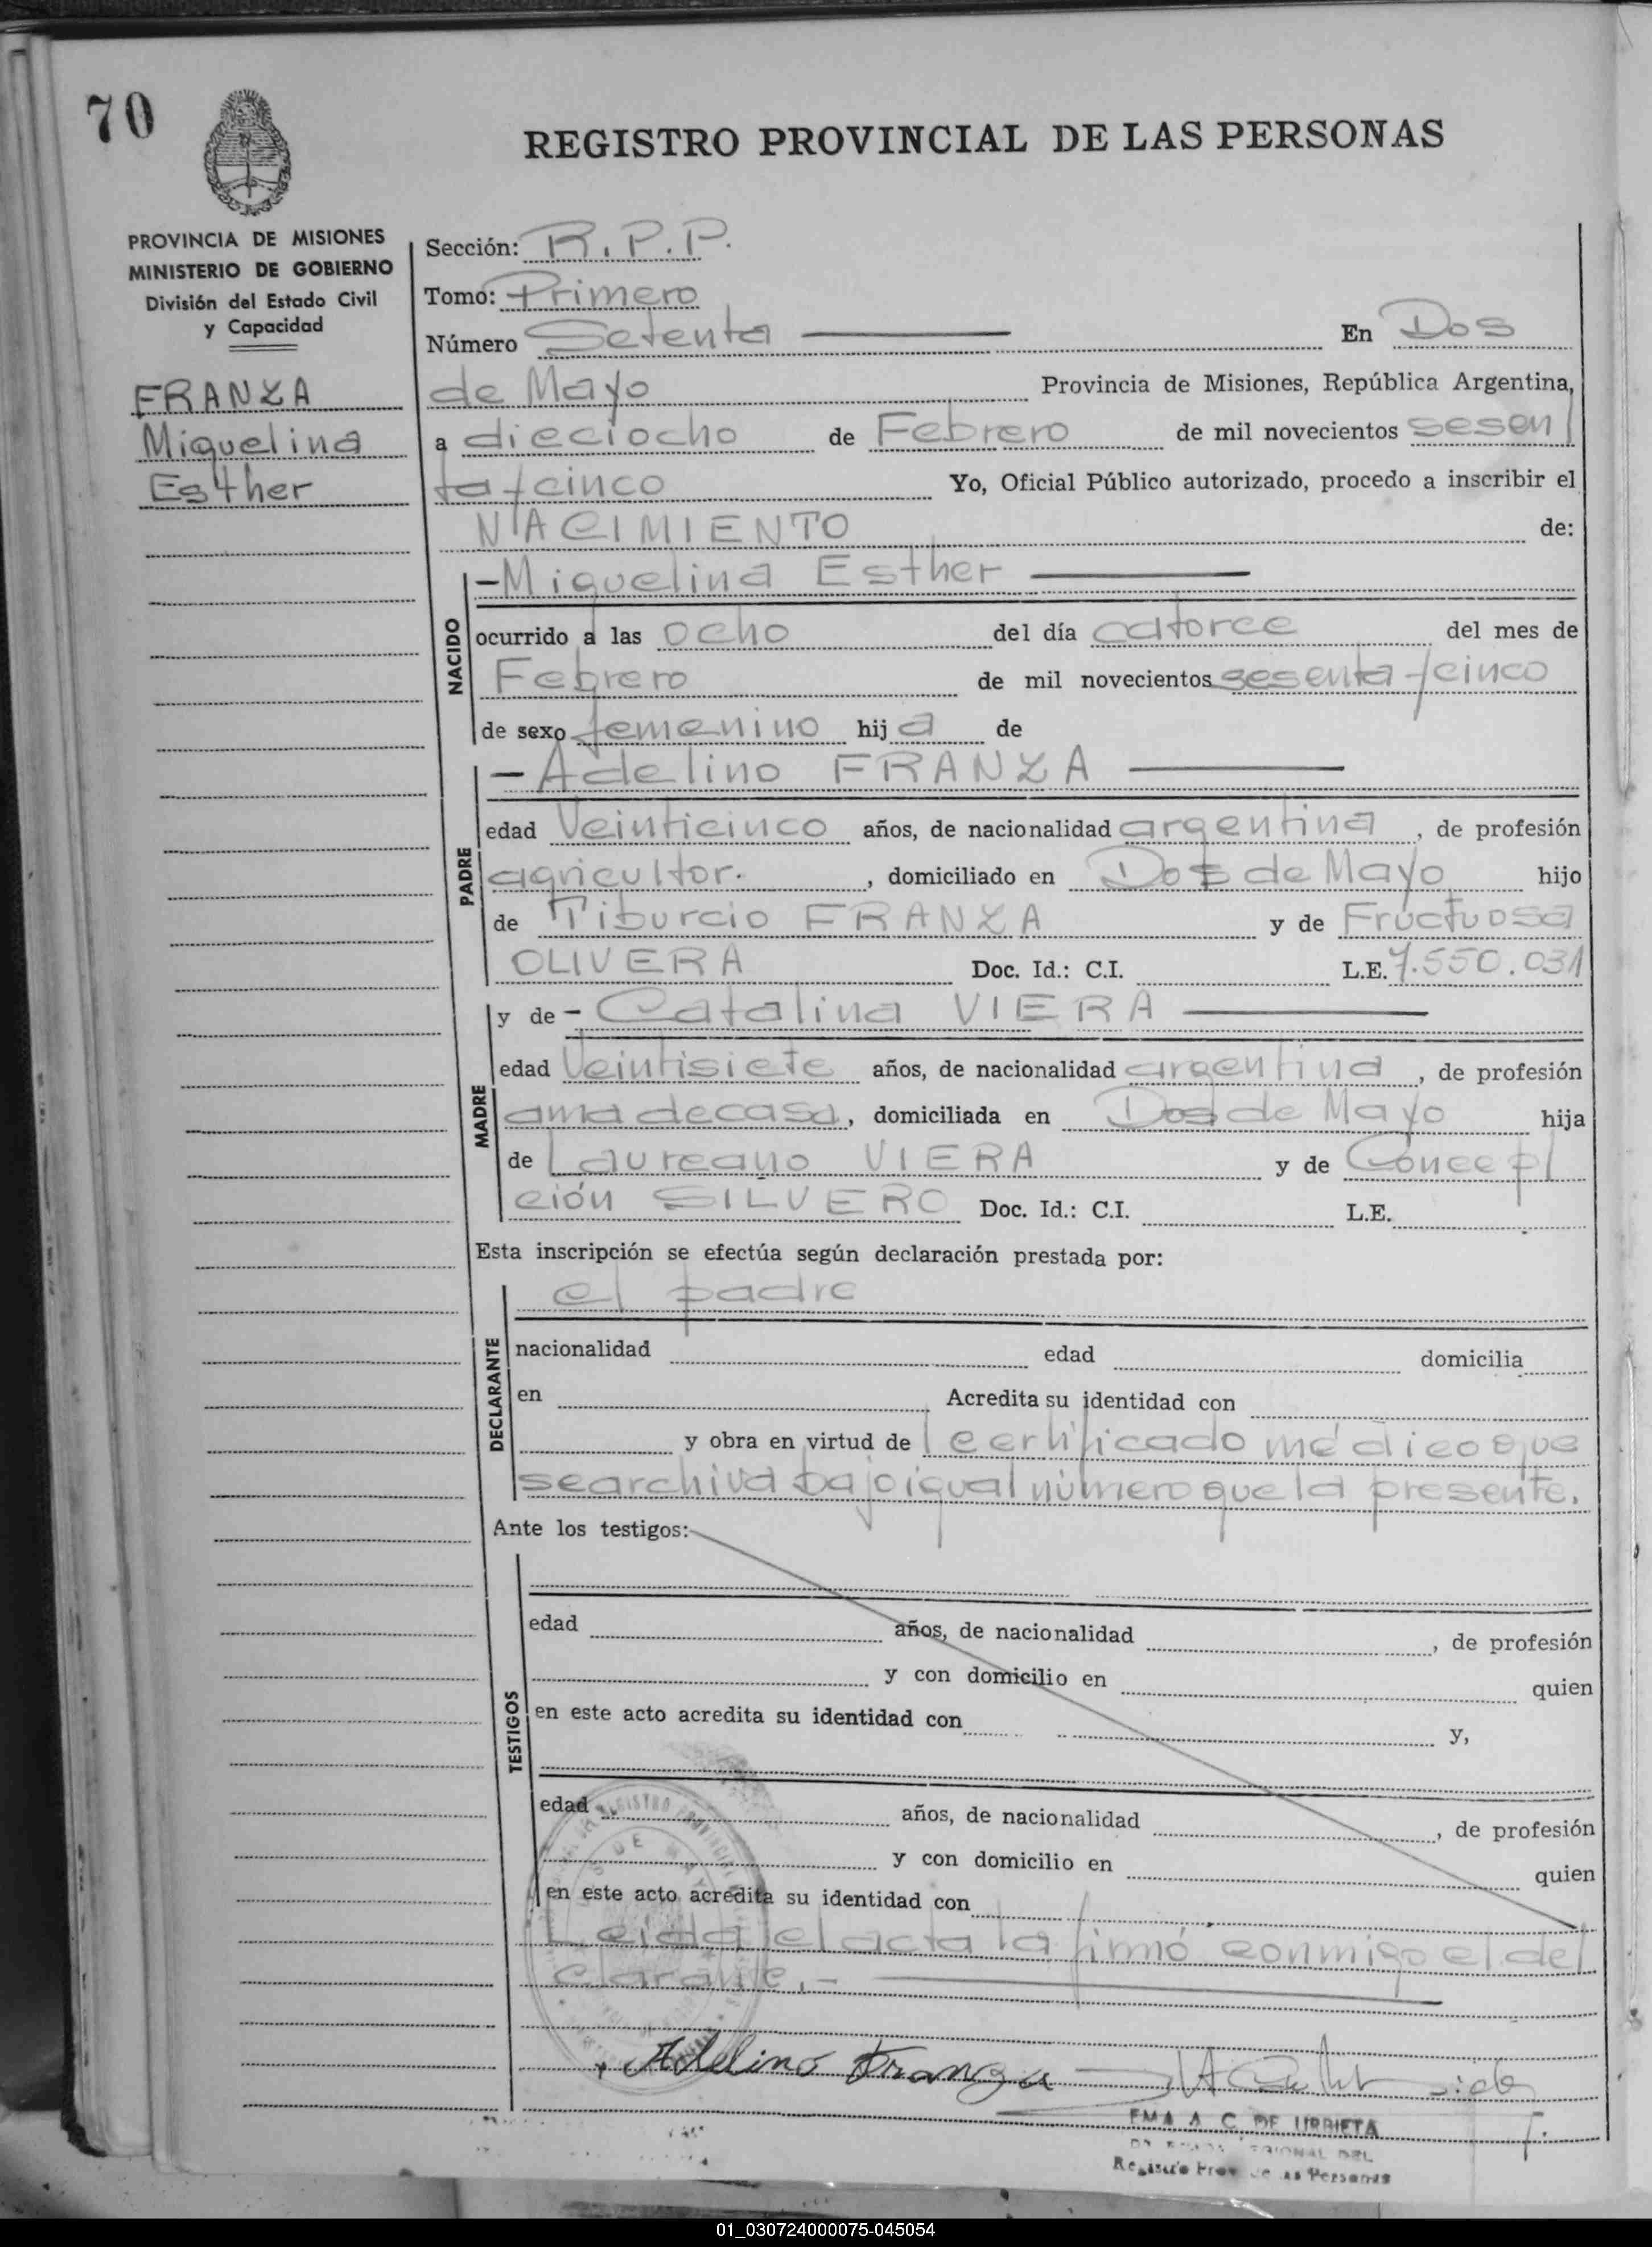 70
REGISTRO PROVINCIAL DE LAS PERSONAS
PROVINCIA DE MISIONES
MINISTERIO DE GOBIERNO
División del Estado Civil
y Capacidad
FRANZA
Miguelina
Esther
Sección: R.P.P.
Tomo: Primero
Número Setenta En Dos
de Mayo Provincia de Misiones, República Argentina,
a dieciocho de Febrero de mil novecientos sesen
ta y cinco Yo, Oficial Público autorizado, procedo a inscribir el
NACIMIENTO de:
NACIDO
- Miguelina Esther
ocurrido a las ocho del día catorce del mes de
Febrero de mil novecientos sesenta y cinco
de sexo femenino hija de
PADRE
- Adelino FRANZA
edad Veinticinco años, de nacionalidad argentina, de profesión
agricultor., domiciliado en Dos de Mayo hijo
de Tiburcio FRANZA y de Fructuosa
OLIVERA Doc. Id.: C.I. L.E. 7.550.031
MADRE
y de - Catalina VIERA
edad Veintisiete años, de nacionalidad argentina, de profesión
ama de casa, domiciliada en Dos de Mayo hija
de Laureano VIERA y de Concep
ción SILVERO Doc. Id.: C.I. L.E.
Esta inscripción se efectúa según declaración prestada por:
DECLARANTE
el padre
nacionalidad edad domicilia
en Acredita su identidad con
y obra en virtud de certificado médico que
se archiva bajo igual número que la presente.
Ante los testigos:
TESTIGOS
edad años, de nacionalidad , de profesión
y con domicilio en quien
en este acto acredita su identidad con y,
edad años, de nacionalidad , de profesión
y con domicilio en quien
en este acto acredita su identidad con
Leida el acta la firmó conmigo el de
clarante.-
Adelino Franza
EMA A. C. DE URRIETA
Registro Prov. de las Personas
01_030724000075-045054